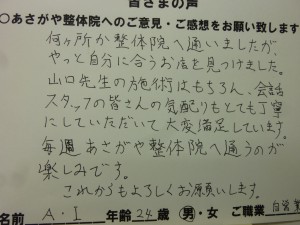 皆さまの声
○あさがや整体院へのご意見・ご感想をお願い致します
何ヶ所か整体院へ通いましたが、
やっと自分に合うお店を見つけました。
山口先生の施術はもちろん、会話
スタッフの皆さんの気配りもとても丁寧
にしていただいて大変満足しています。
毎週あさがや整体院へ通うのが
楽しみです。
これからもよろしくお願いします。
名前 A・I 年齢24歳 男・女 ご職業 自営業